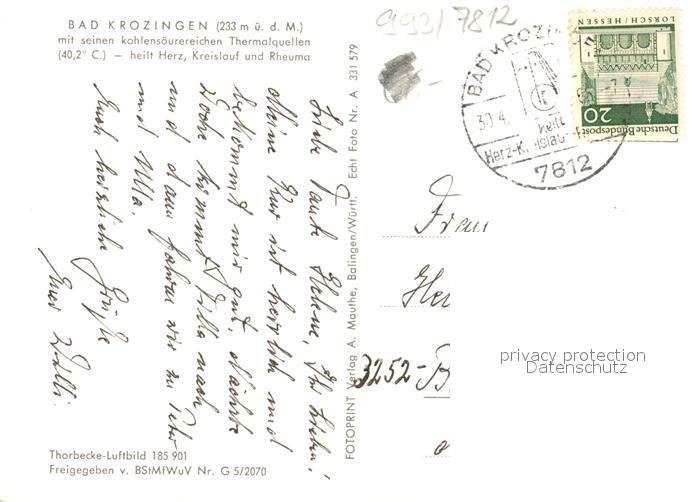 BAD KROZINGEN (233 m ü. d. M.)
mit seinen kohlensäurereichen Thermalquellen
(40,2° C.) – heilt Herz, Kreislauf und Rheuma
993/7812
BAD KROZIN
30.4.
heilt
Herz-Kreislauf-
7812
LORSCH/HESSEN
Deutsche Bundespost
20
Liebe Tante Helene, Ihr Lieben!
Meine Kur ist herrlich und
bekommt mir gut. Nächste
Woche kommt Julla nach
und dann fahren wir zu Peter
und Ulla.
Euch herzliche Grüße
Euer Willi.
FOTOPRINT Verlag A. Mauthe, Balingen/Württ. Echt Foto Nr. A 331 579
Frau
He
3252-B
privacy protection
Datenschutz
Thorbecke-Luftbild 185 901
Freigegeben v. BStMfWuV Nr. G 5/2070